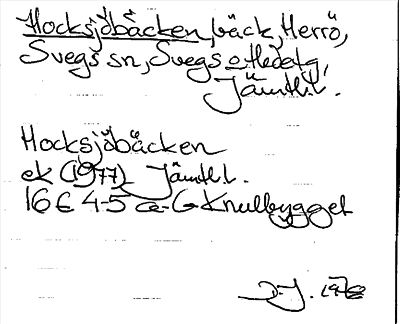 Hocksjöbäcken, bäck, Herrö,
Svegs sn, Svegs o Hede tg,
Jämtl.l.
Hocksjöbäcken
ek (1977) Jämtl.l.
16 E 4-5 a-c Knullbygget
D-J. 1978